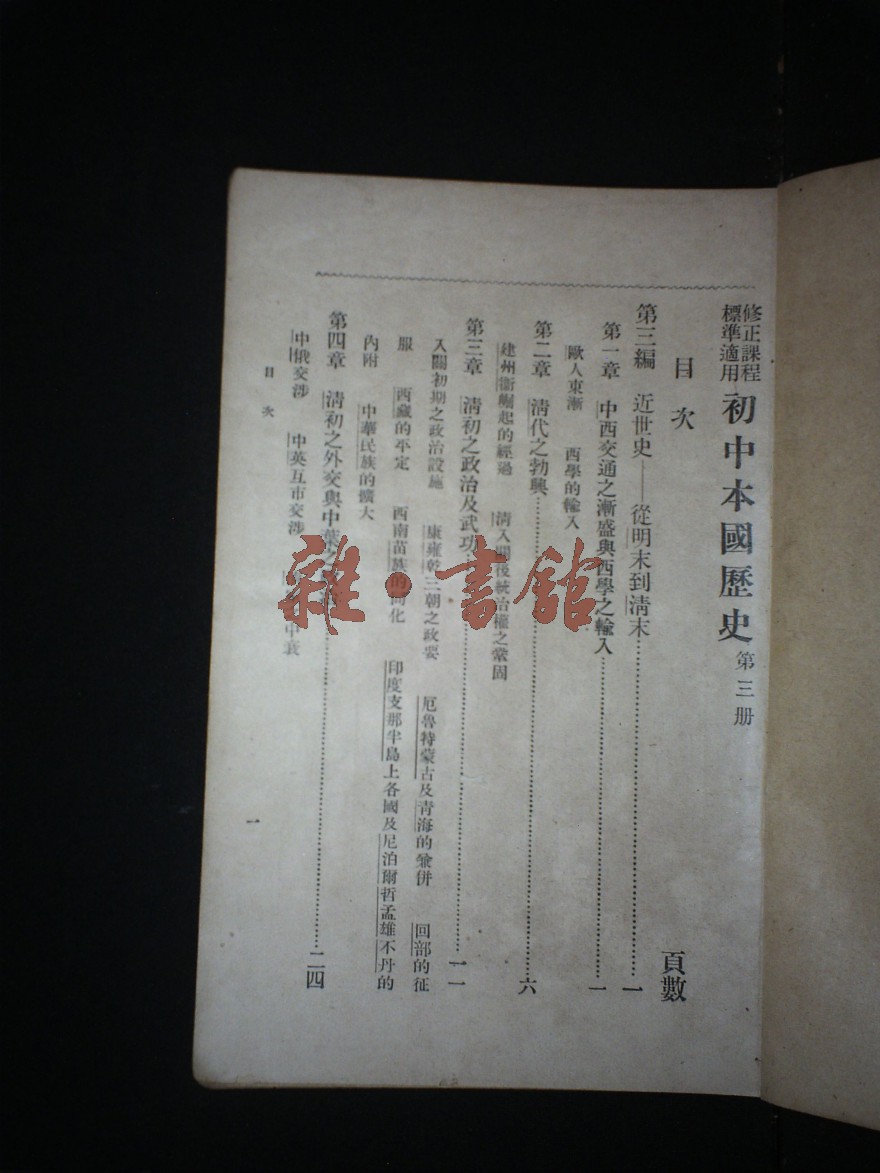 修正課程
標準適用
初中本國歷史 第三册
目次 頁數
第三編 近世史——從明末到清末……一
第一章 中西交通之漸盛與西學之輸入……一
歐人東漸 西學的輸入
第二章 清代之勃興……六
建州衞崛起的經過 清入關後統治權之鞏固
第三章 清初之政治及武功……一一
入關初期之政治設施 康雍乾三朝之政要 厄魯特蒙古及青海的兼併 回部的征
服 西藏的平定 西南苗族的同化 印度支那半島上各國及尼泊爾哲孟雄不丹的
內附 中華民族的擴大
第四章 清初之外交與中葉之……二四
中俄交涉 中英互市交涉 中衰
目次 一
雜·書館